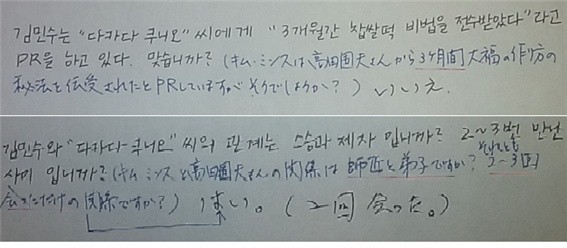 김민수는 "다카다 쿠니오" 씨에게 "3개월간 찹쌀떡 비법을 전수받았다"라고
PR을 하고 있다. 맞습니까? (キム・ミンスは高田国夫さんから3ヶ月間大福の作り方の
秘法を伝受されたとPRしていますが そうでしょうか?) いいえ.
김민수와 "다카다 쿠니오" 씨의 관계는 스승과 제자 입니까? 2~3번 만난
사이 입니까? (キム・ミンスと高田国夫さんの関係は師匠と弟子ですか? それとも 2~3回
会っただけの関係ですか?) はい。(2回会った。)